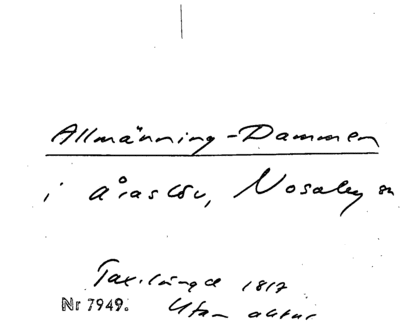 Allmänning-Dammen
i Åraslöv, Nosaby sn
Tax.längd 1817
Nr 7949. Utan aktnr